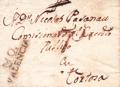 Dn. Nicolas Pasanau
Comisionado del Credito
Publico
en
Tortosa
VALENCIA